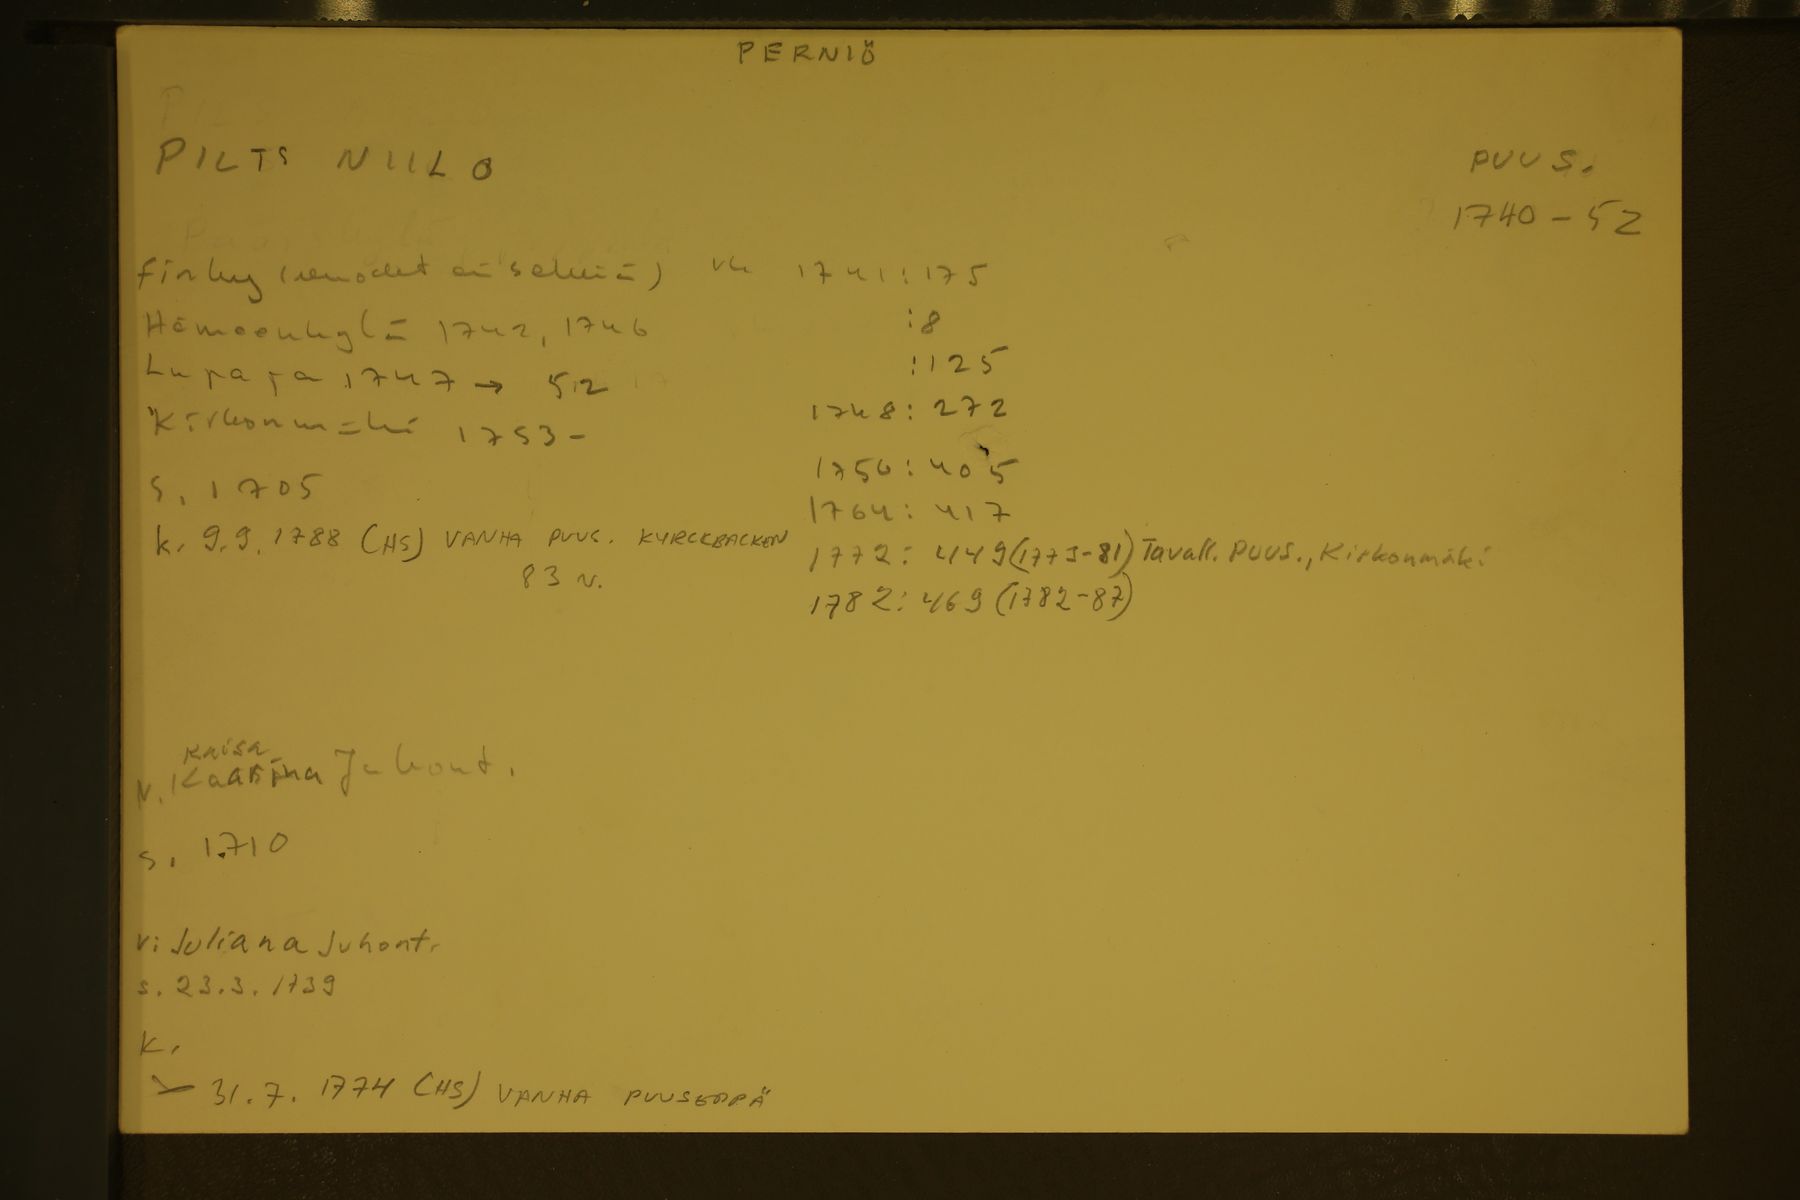 PERNIÖ
PILTS NIILO
PUUS.
1740-52
Finby (vuodet ei selviä) vk 1741:175
Hämeenkylä 1742, 1746 :8
Lupaja 1747 → 52 :125
Kirkonmäki 1753- 1748:272
1756:405
s. 1705
1764:417
k. 9.9.1788 (HS) VANHA PUUS. KYRCKBACKEN
83 v.
1772: 449 (1773-81) Tavall. PUUS., Kirkonmäki
1782: 469 (1782-87)
Kaisa
v. Kaarina Juhont.
s. 1710
v: Juliana Juhont.
s. 23.3.1739
k.
31.7.1774 (HS) VANHA PUUSEPPÄ